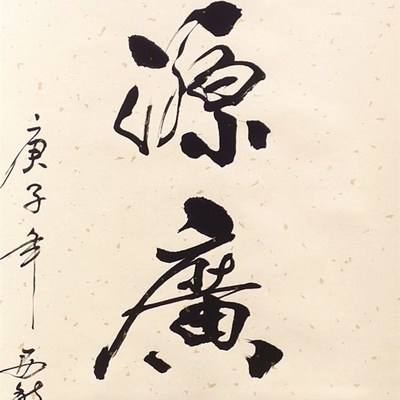 源廣
庚子年 西